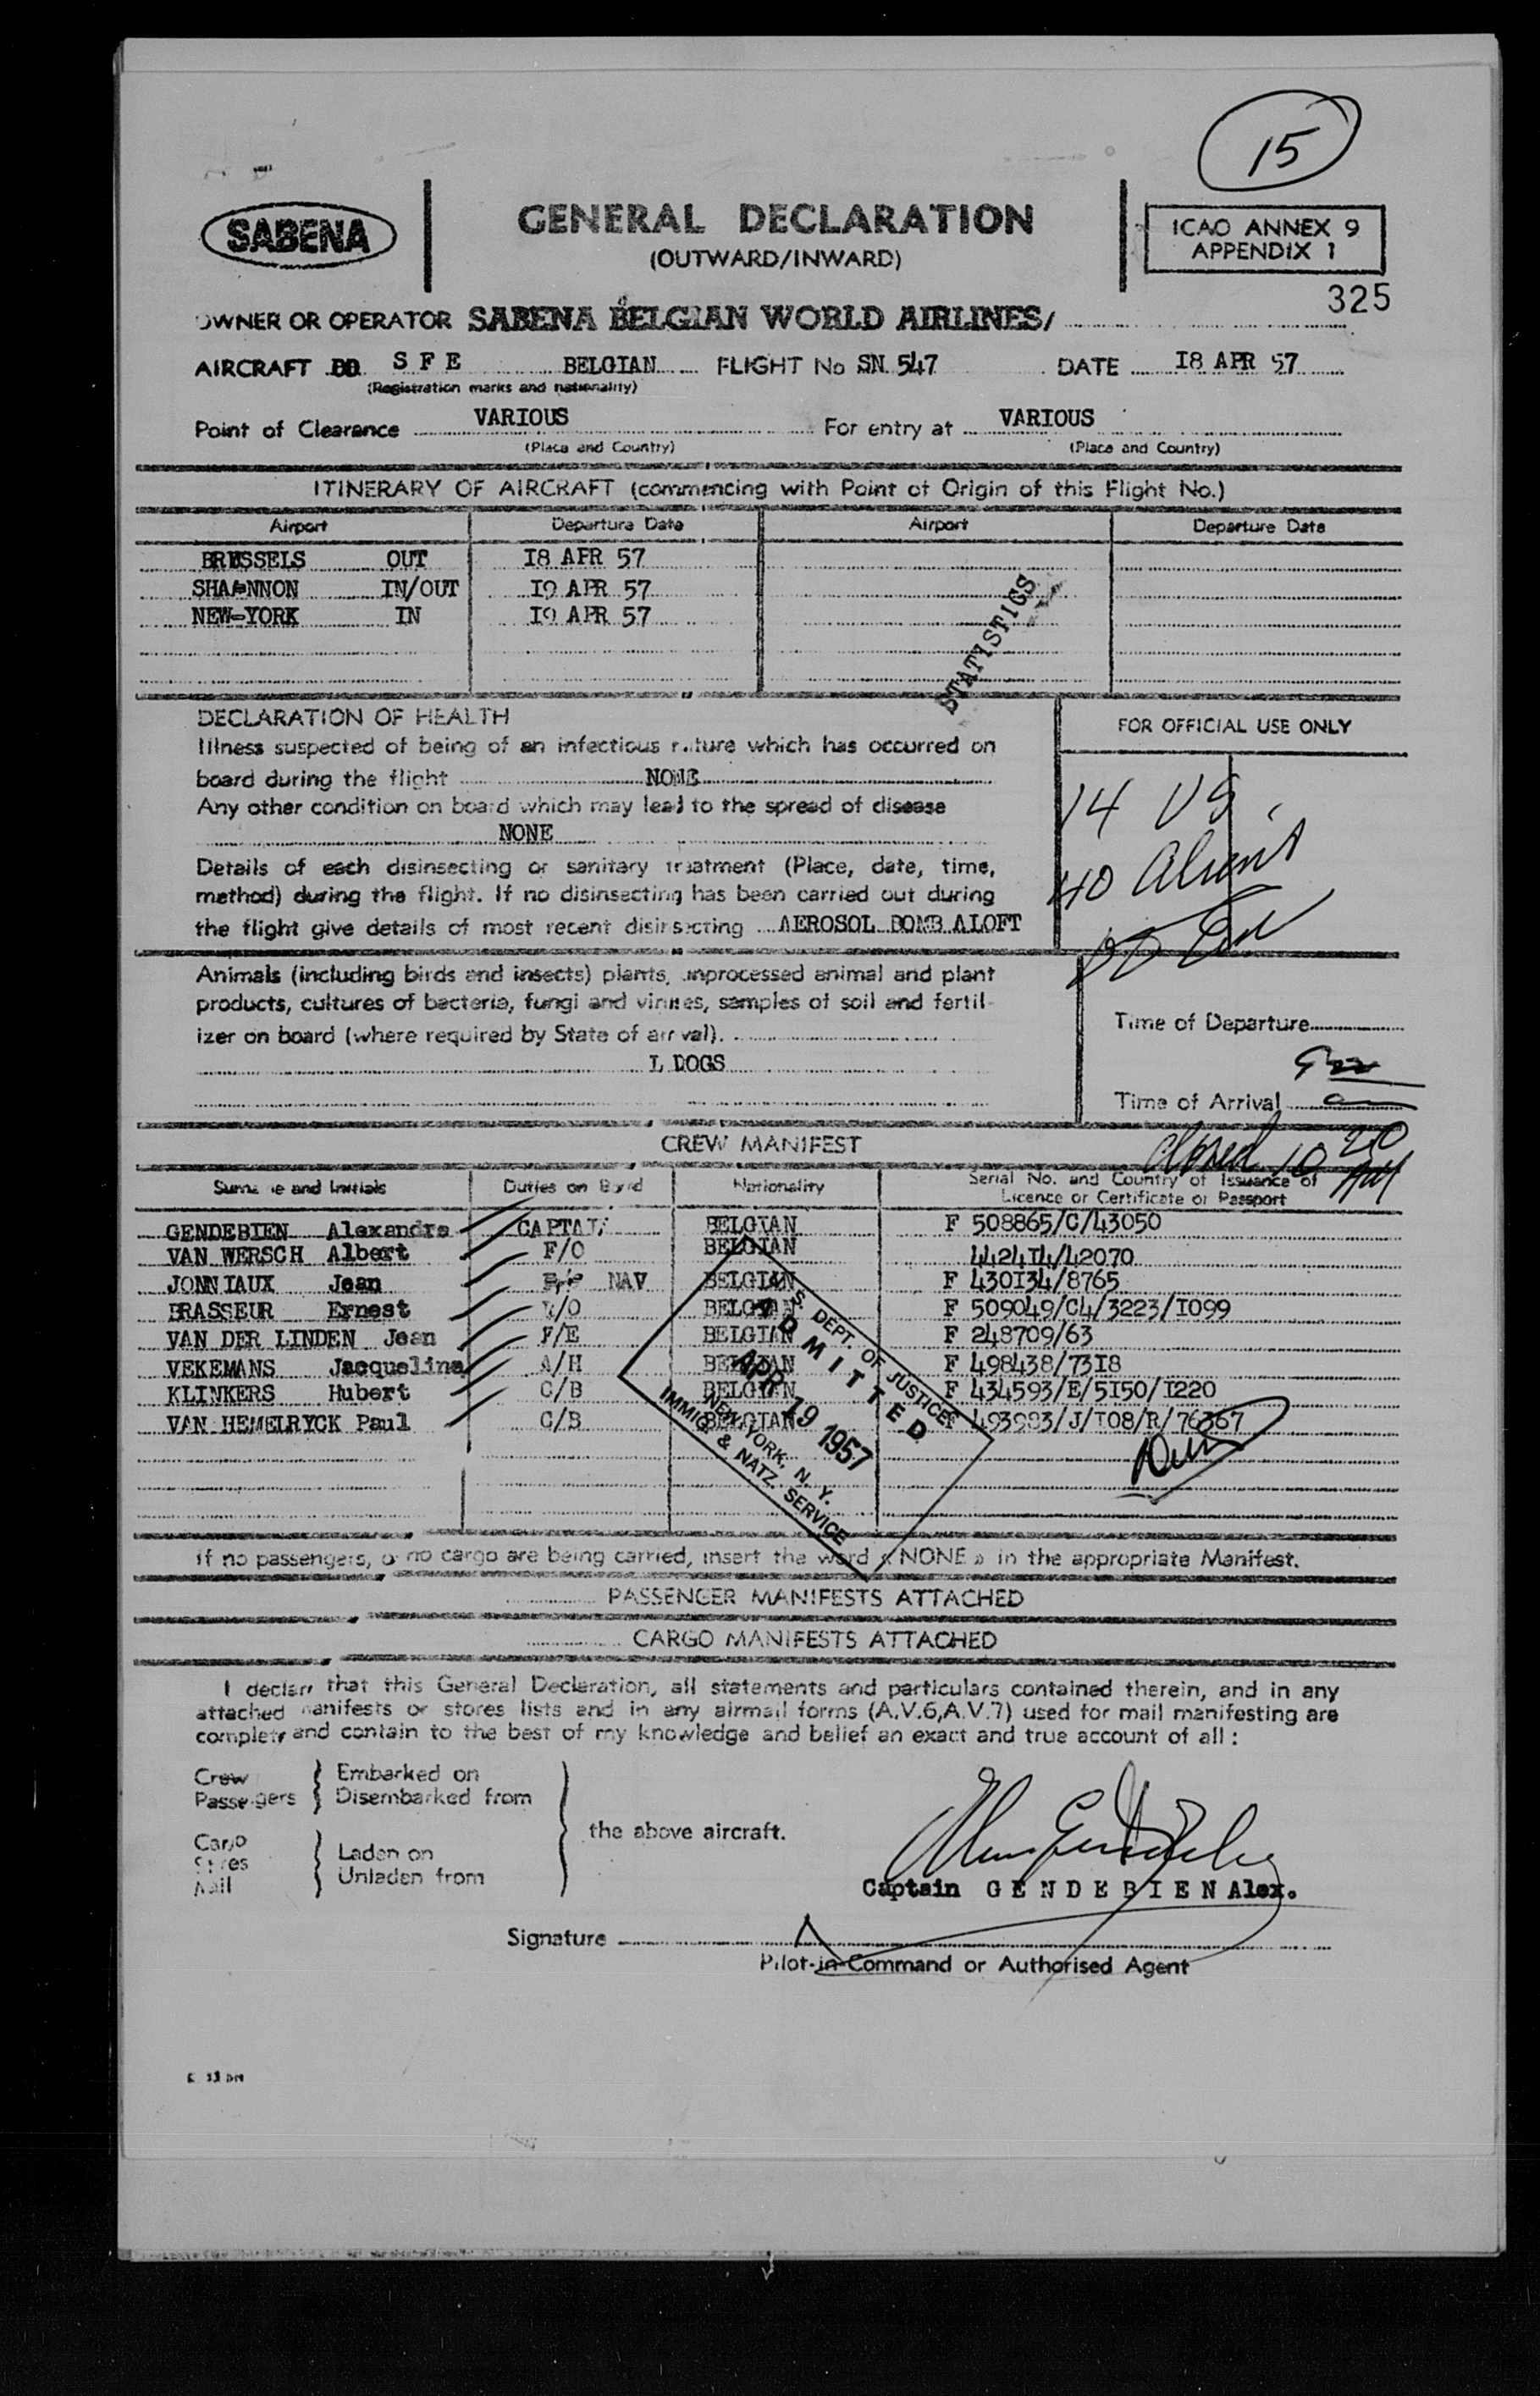 15
SABENA
GENERAL DECLARATION
(OUTWARD/INWARD)
ICAO ANNEX 9
APPENDIX 1
325
OWNER OR OPERATOR SABENA BELGIAN WORLD AIRLINES/
AIRCRAFT S F E BELGIAN FLIGHT No SN 547 DATE I8 APR 57
(Registration marks and nationality)
Point of Clearance VARIOUS For entry at VARIOUS
(Place and Country) (Place and Country)
ITINERARY OF AIRCRAFT (commencing with Point of Origin of this Flight No.)
Airport Departure Date Airport Departure Date
BRUSSELS OUT I8 APR 57
SHANNON IN/OUT I9 APR 57
NEW-YORK IN I9 APR 57
STATISTICS
DECLARATION OF HEALTH
FOR OFFICIAL USE ONLY
Illness suspected of being of an infectious nature which has occurred on
board during the flight NONE
Any other condition on board which may lead to the spread of disease
NONE
14 US
40 Aliens
Details of each disinsecting or sanitary treatment (Place, date, time,
method) during the flight. If no disinsecting has been carried out during
the flight give details of most recent disinsecting AEROSOL BOMB ALOFT
Animals (including birds and insects) plants, unprocessed animal and plant
products, cultures of bacteria, fungi and viruses, samples of soil and fertil-
izer on board (where required by State of arrval).
DOGS
Time of Departure
Time of Arrival
CREW MANIFEST
closed 10 20 AM
Surname and Initials Duties on Board Nationality Serial No. and Country of Issuance of
Licence or Certificate or Passport
GENDEBIEN Alexandre CAPTAIN BELGIAN F 508865/C/43050
VAN WERSCH Albert F/O BELGIAN 4424I4/42070
JONNIAUX Jean NAV BELGIAN F 430I34/8765
BRASSEUR Ernest /O BELGIAN F 509049/C4/3223/I099
VAN DER LINDEN Jean F/E BELGIAN F 248709/63
VEKEMANS Jacqueline A/H BELGIAN F 498438/73I8
KLINKERS Hubert C/B BELGIAN F 434593/E/5I50/I220
VAN HEMELRYCK Paul C/B BELGIAN /J/I08/R/76367
U.S. DEPT. OF JUSTICE
ADMITTED
APR 19 1957
NEW YORK, N. Y.
IMMIG. & NATZ. SERVICE
If no passengers, or no cargo are being carried, insert the word « NONE » in the appropriate Manifest.
PASSENGER MANIFESTS ATTACHED
CARGO MANIFESTS ATTACHED
I declare that this General Declaration, all statements and particulars contained therein, and in any
attached manifests or stores lists and in any airmail forms (A.V.6,A.V.7) used for mail manifesting are
complete and contain to the best of my knowledge and belief an exact and true account of all :
Crew
Passengers
Embarked on
Disembarked from
Cargo
Stores
Mail
Laden on
Unladen from
the above aircraft.
Captain G E N D E B I E N Alex.
Signature
Pilot-in-Command or Authorised Agent